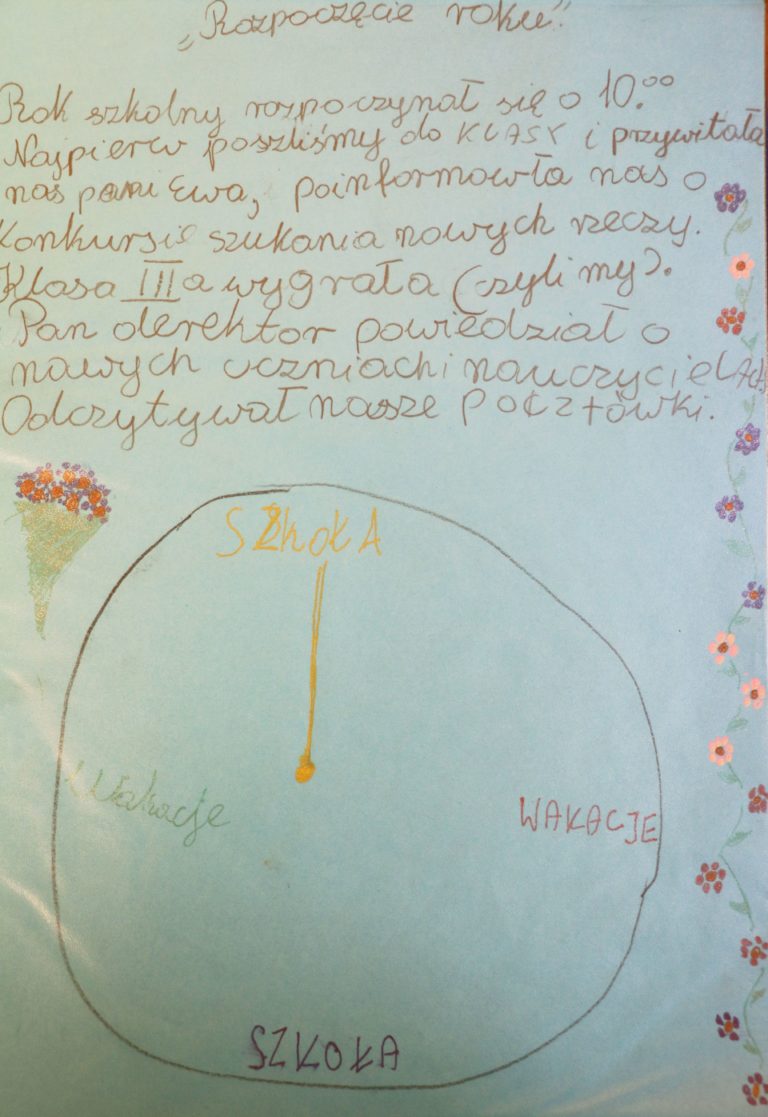 „Rozpoczęcie roku”
Rok szkolny rozpoczynał się o 10.⁰⁰
Najpierw poszliśmy do KLASY i przywitała
nas pani Ewa, poinformowła nas o
Konkursie szukania nowych rzeczy.
Klasa III a wygrała (czyli my).
Pan derektor powiedział o
nowych uczniach i nauczycielach
Odczytywał nasze pocztówki.
SZkoŁA
Wakacje
WAKACJE
SZKOŁA